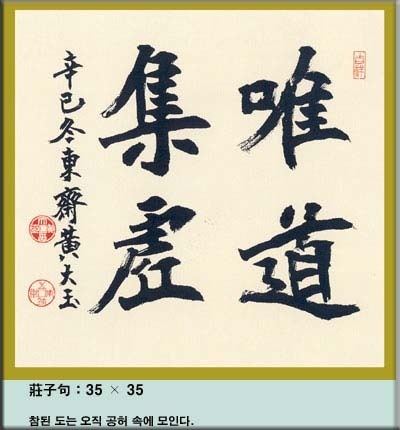 唯道
集虛
辛巳冬東齋黃大玉
莊子句：35 × 35
참된 도는 오직 공허 속에 모인다.